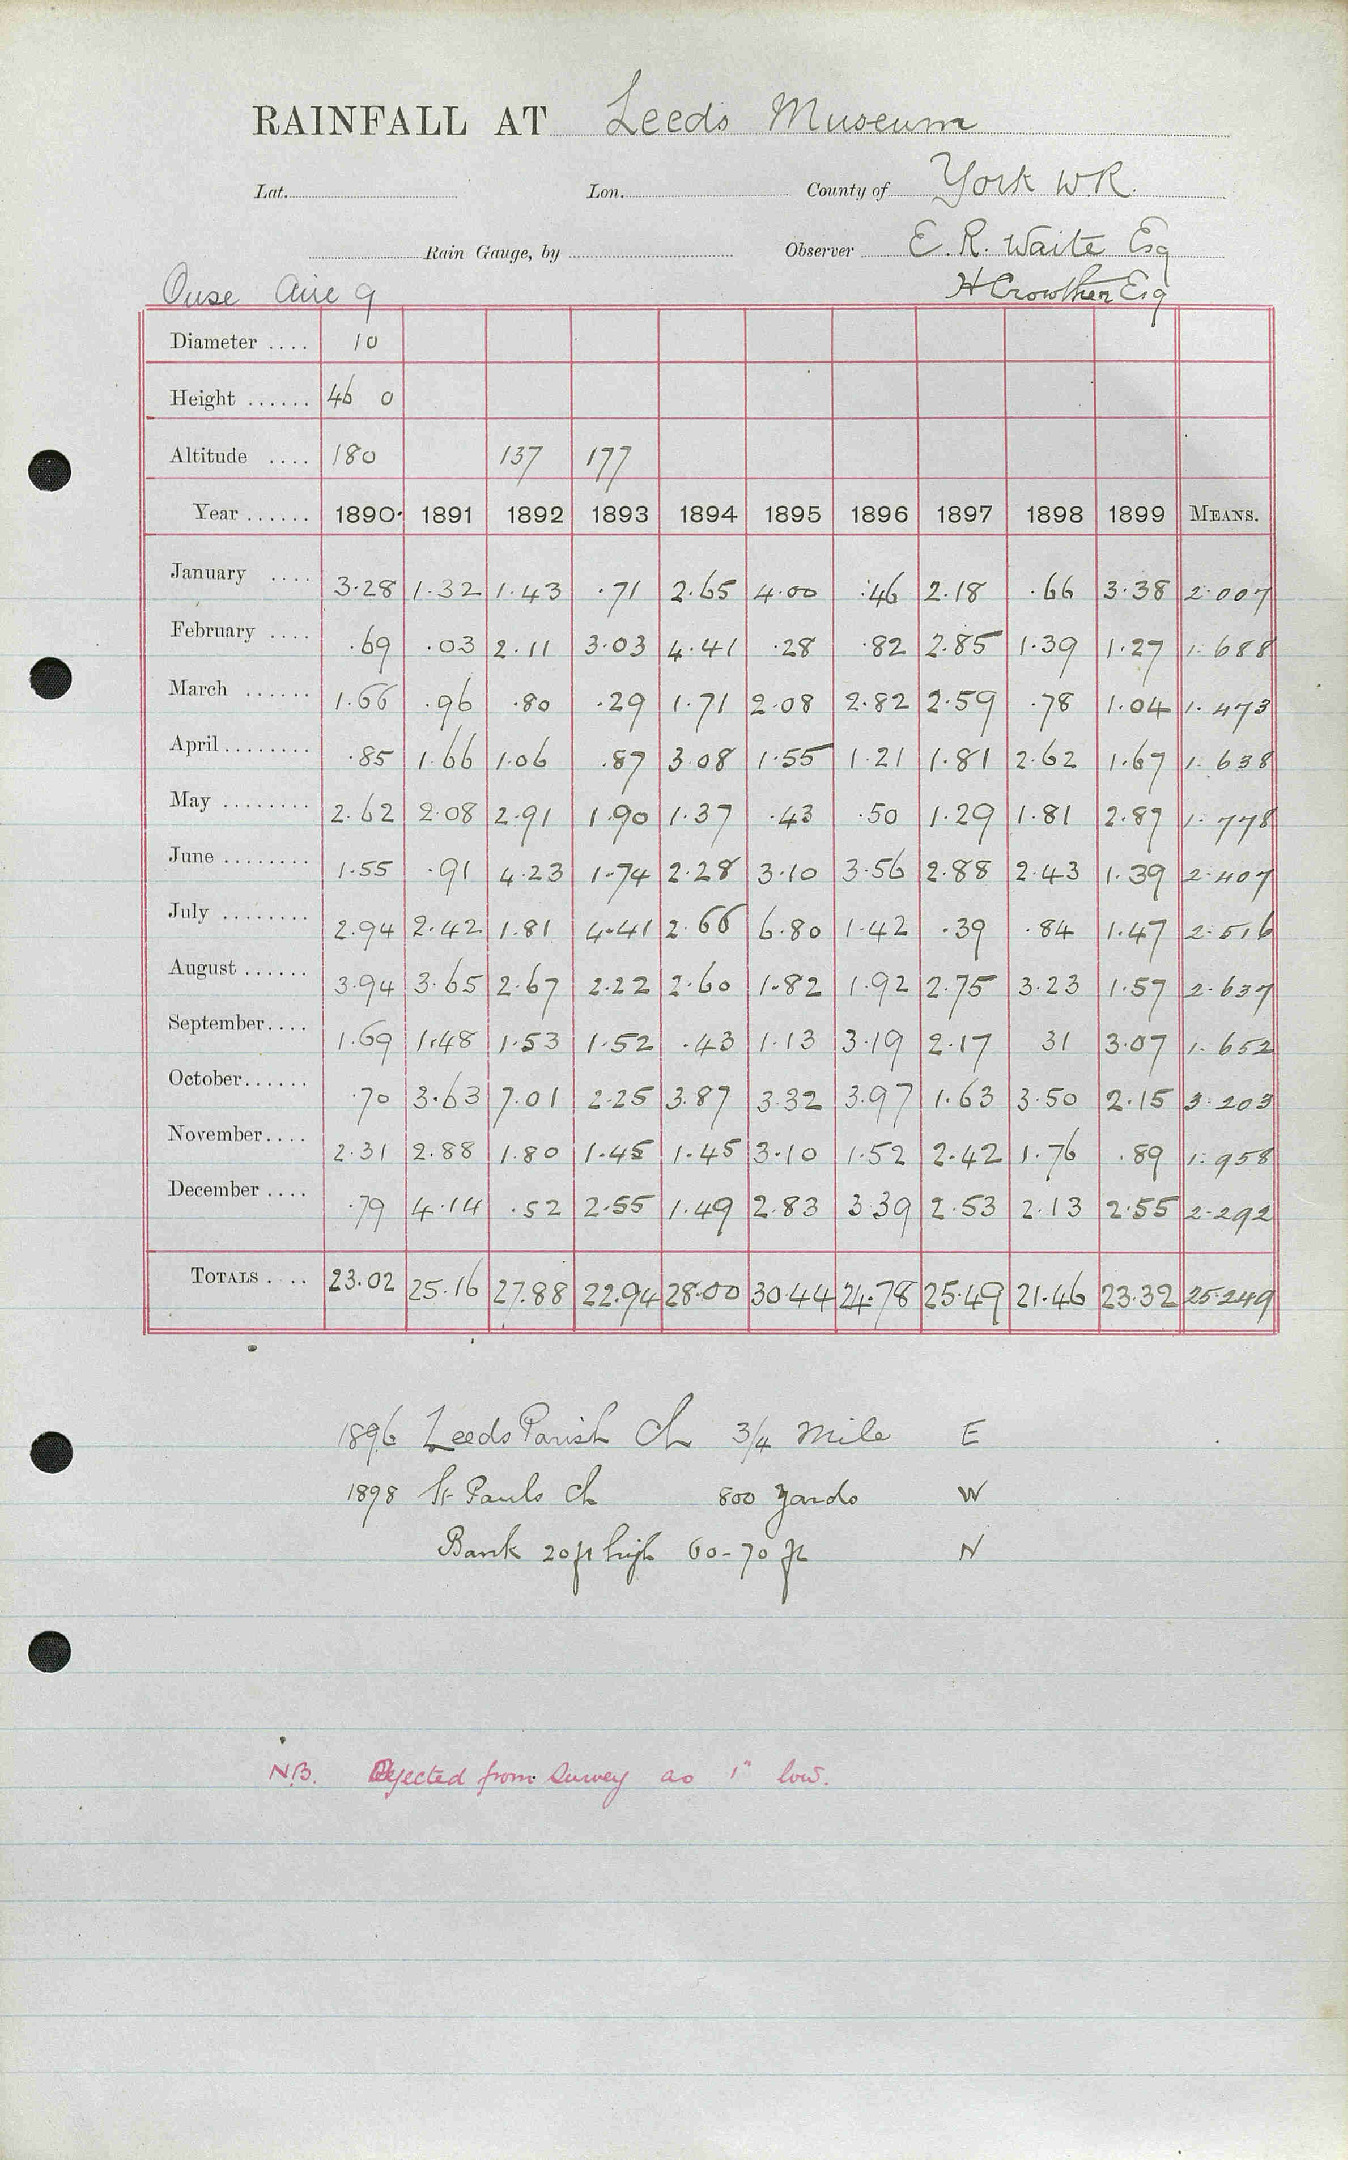 RAINFALL AT Leeds Museum
Lat. Lon. County of York W.R.
Rain Gauge, by Observer E. R. Waite Esq
Ouse Aire 9 H Crowther Esq
Diameter .... 10
Height ...... 46 0
Altitude .... 180 137 177
Year ...... 1890 1891 1892 1893 1894 1895 1896 1897 1898 1899 MEANS.
January .... 3.28 1.32 1.43 .71 2.65 4.00 .46 2.18 .66 3.38 2.007
February .... .69 .03 2.11 3.03 4.41 .28 .82 2.85 1.39 1.27 1.688
March ...... 1.66 .96 .80 .29 1.71 2.08 2.82 2.59 .78 1.04 1.473
April ........ .85 1.66 1.06 .87 3.08 1.55 1.21 1.81 2.62 1.67 1.638
May ........ 2.62 2.08 2.91 1.90 1.37 .43 .50 1.29 1.81 2.87 1.778
June ........ 1.55 .91 4.23 1.74 2.28 3.10 3.56 2.88 2.43 1.39 2.407
July ........ 2.94 2.42 1.81 4.41 2.66 6.80 1.42 .39 .84 1.47 2.516
August ...... 3.94 3.65 2.67 2.22 2.60 1.82 1.92 2.75 3.23 1.57 2.637
September.... 1.69 1.48 1.53 1.52 .43 1.13 3.19 2.17 31 3.07 1.652
October...... .70 3.63 7.01 2.25 3.87 3.32 3.97 1.63 3.50 2.15 3.203
November.... 2.31 2.88 1.80 1.45 1.45 3.10 1.52 2.42 1.76 .89 1.958
December .... .79 4.14 .52 2.55 1.49 2.83 3.39 2.53 2.13 2.55 2.292
TOTALS .... 23.02 25.16 27.88 22.94 28.00 30.44 24.78 25.49 21.46 23.32 25.249
1896 Leeds Parish Ch 3/4 mile E
1898 St Pauls Ch 800 yards W
Bank 20 ft high 60-70 ft N
N.B. Rejected from survey as 1" low.